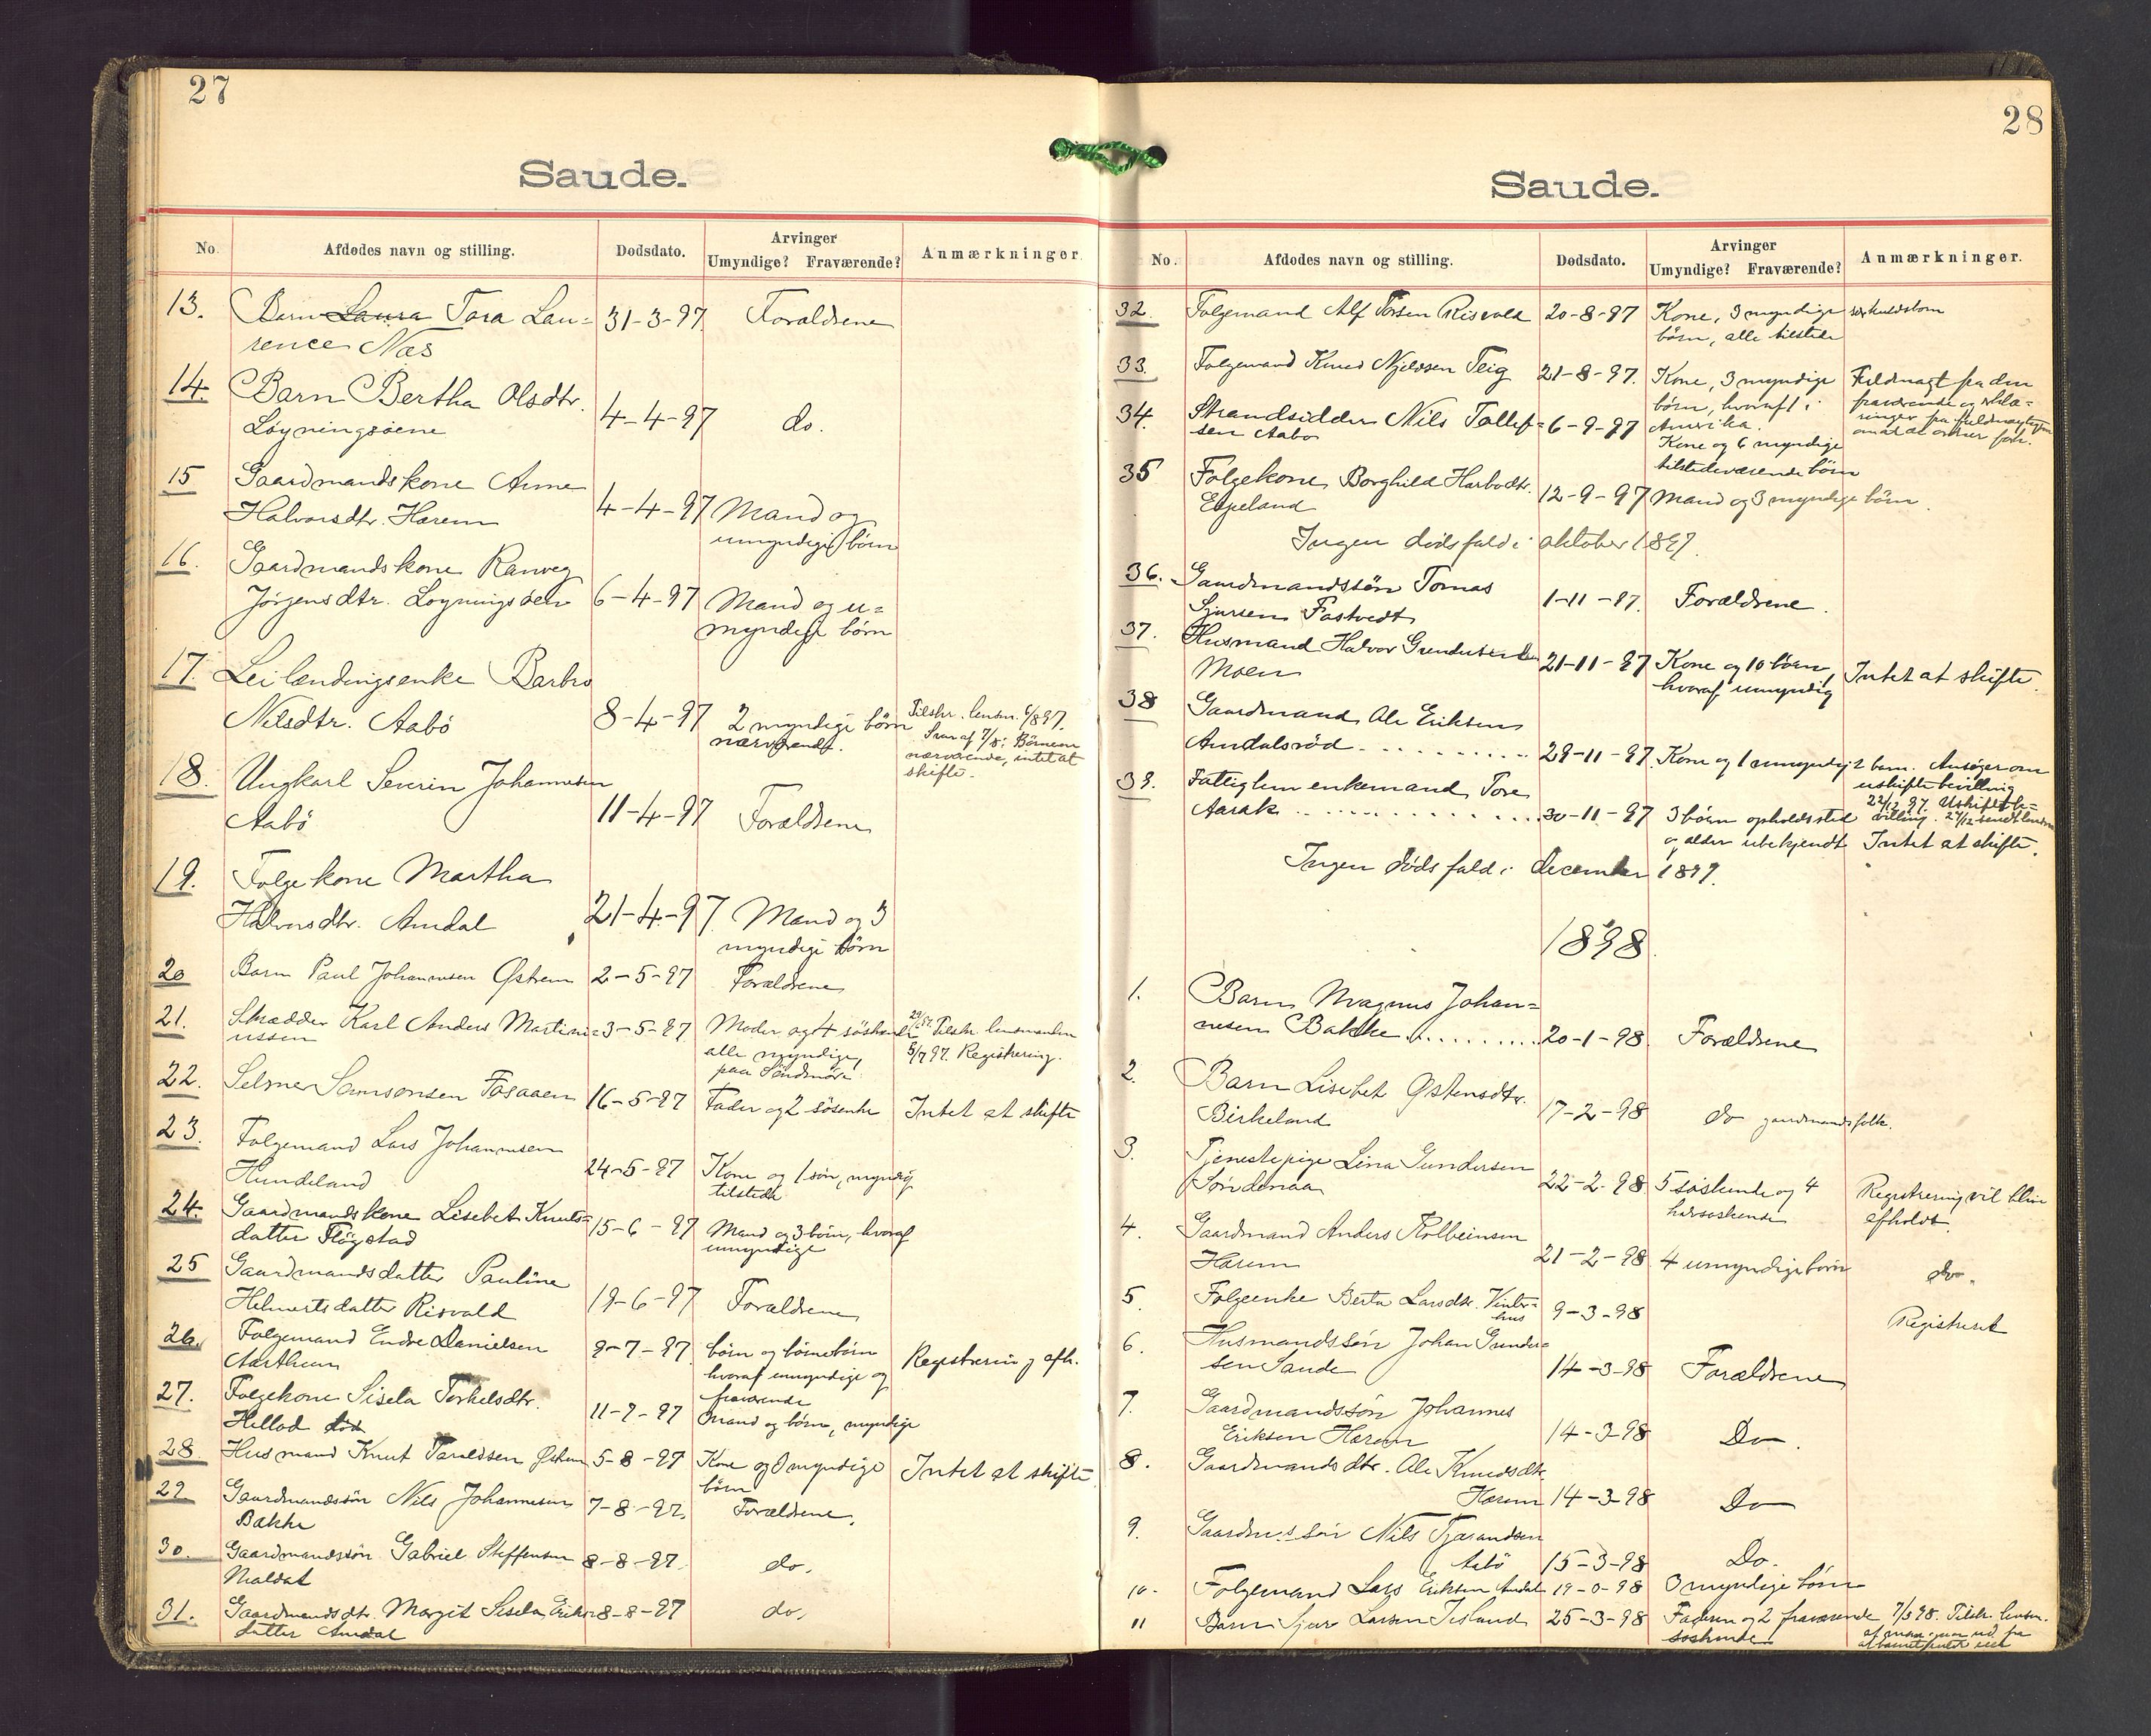 27
Saude.
No. Afdødes navn og stilling. Dødsdato. Arvinger Umyndige? Fraværende? Anmærkninger.
13. Barn Laura Tora Lau- 31-3-97. Forældrene
rence Næs
14. Barn Bertha Olsdtr. 4-4-97 do.
Løyningsøene
15 Gaardmandskone Anne 4-4-97 Mand og
Halvorsdtr. Harem umyndige børn
16. Gaardmandskone Ranveg
Jørgensdtr. Løyningsøen 6-4-97 Mand og u-
myndige børn
17. Leilændingsenke Barbro
Nilsdtr. Aabö 8-4-97 2 myndige børn Tilskr. lensm. 6/8 97.
nærværende. Svar af 7/8: Børnene
nærværende, intet at
skifte.
18. Ungkarl Severin Johannesen
Aabö 11-4-97 Forældrene
19. Folgekone Martha
Halvorsdtr. Amdal 21-4-97 Mand og 3
myndige børn
20 Barn Paul Johannesen Østrem 2-5-97 Forældrene
21. Skrædder Karl Anders Martini- 3-5-97 Moder og 4 søskende Tilskr. lensmanden
ussen alle myndige, 5/7 97. Registrering.
paa Söndmöre
22. Selmer Samsonsen Fosaaen 16-5-97 Fader og 2 søskende Intet at skifte
23. Folgemand Lars Johannesen
Hundeland 24-5-97 Kone og 1 søn, myndig
tilstede
24. Gaardmandskone Lisebet Knuts-
datter Fløgstad 15-6-97 Mand og 3 børn, hvoraf
umyndige
25 Gaardmandsdatter Pauline
Helmertsdatter Risvold 19-6-97 Forældrene
26. Folgemand Endre Danielsen 9-7-97 børn og børnebørn Registrering afh.
Aarthun hvoraf umyndige og
fraværende
27. Folgekone Sisela Torkelsdtr. 11-7-97 Mand og børn, myndige
Hellod
28. Husmand Knut Taraldsen 5-8-97 Kone og 8 myndige Intet at skifte
børn
29 Gaardmandssön Nils Johannesen 7-8-97. Forældrene.
Bakke
30. Gaardmandssön Gabriel Steffensen 8-8-97. do.
Maldal
31. Gaardmandsdtr. Margit Sisela Eriks- 8-8-97 do.
datter Amdal
28
Saude.
No. Afdødes navn og stilling. Dødsdato. Arvinger Umyndige? Fraværende? Anmærkninger.
32. Folgemand Alf Torsen Risvold 20-8-97 Kone, 3 myndige
børn, alle tilstede
33. Folgemand Knud Njeldsen Teig 21-8-97. Kone, 3 myndige Fuldmagt fra den
børn, hvoraf 1 i fraværende og erklæ-
Amerika. ringer fra fuldmægtigen
34. Strandsidder Nils Tollef- 6-9-97 Kone og 6 myndige
sen Aabo tilstedeværende børn
35 Folgekone Borghild Harbodtr. 12-9-97 Mand og 3 myndige børn.
Espeland
Ingen dödsfald i oktober 1897.
36. Gaardmandssön Tomas 1-11-97. Forældrene.
Sjursen Fastvedt
37. Husmand Halvor Gundersen 21-11-97 Kone og 10 børn, Intet at skifte.
Moen hvoraf umyndig
38 Gaardmand Ole Eriksen
Amdalsröd 29-11-97. Kone og 1 umyndigt barn. Ansøger om
uskiftebevilling
22/12 97. Uskiftebe-
villing
39. Fattiglem enkemand Tore
Aarak 30-11-97 3 børn opholdssted
og alder ubekjendt Intet at skifte.
Ingen dödsfald i december 1897.
1898.
1. Barn Magnus Johan-
nesen Bakke 20-1-98. Forældrene
2. Barn Lisebet Østensdtr.
Birkeland 17-2-98 do gaardmandsfolk.
3. Tjenestepige Lina Gundersen
Søndenaa 22-2-98 5 søskende og 4 Registrering vil blive
halvsøskende afholdt
4. Gaardmand Anders Kolbeinsen
Harem 21-2-98 4 umyndige børn do.
5. Folgeenke Berta Larsdtr. Vinter-
hus 9-3-98 Registreret
6. Husmandssön Johan Gunder-
sen Sande 14-3-98 Forældrene
7. Gaardmandssön Johannes
Eriksen Harem 14-3-98 Do.
8. Gaardmandsdtr. Ale Knudsdtr.
Harem 14-3-98 Do
9. Gaardm.s sön Nils Tjerandsen
Aabö 15-3-98 Do.
10. Folgemand Lars Eriksen Amdal 19-3-98 3 myndige børn
11 Barn Sjur Larsen 25-3-98 Faderen og 2 fraværende Tilskr. lensm.
søskende